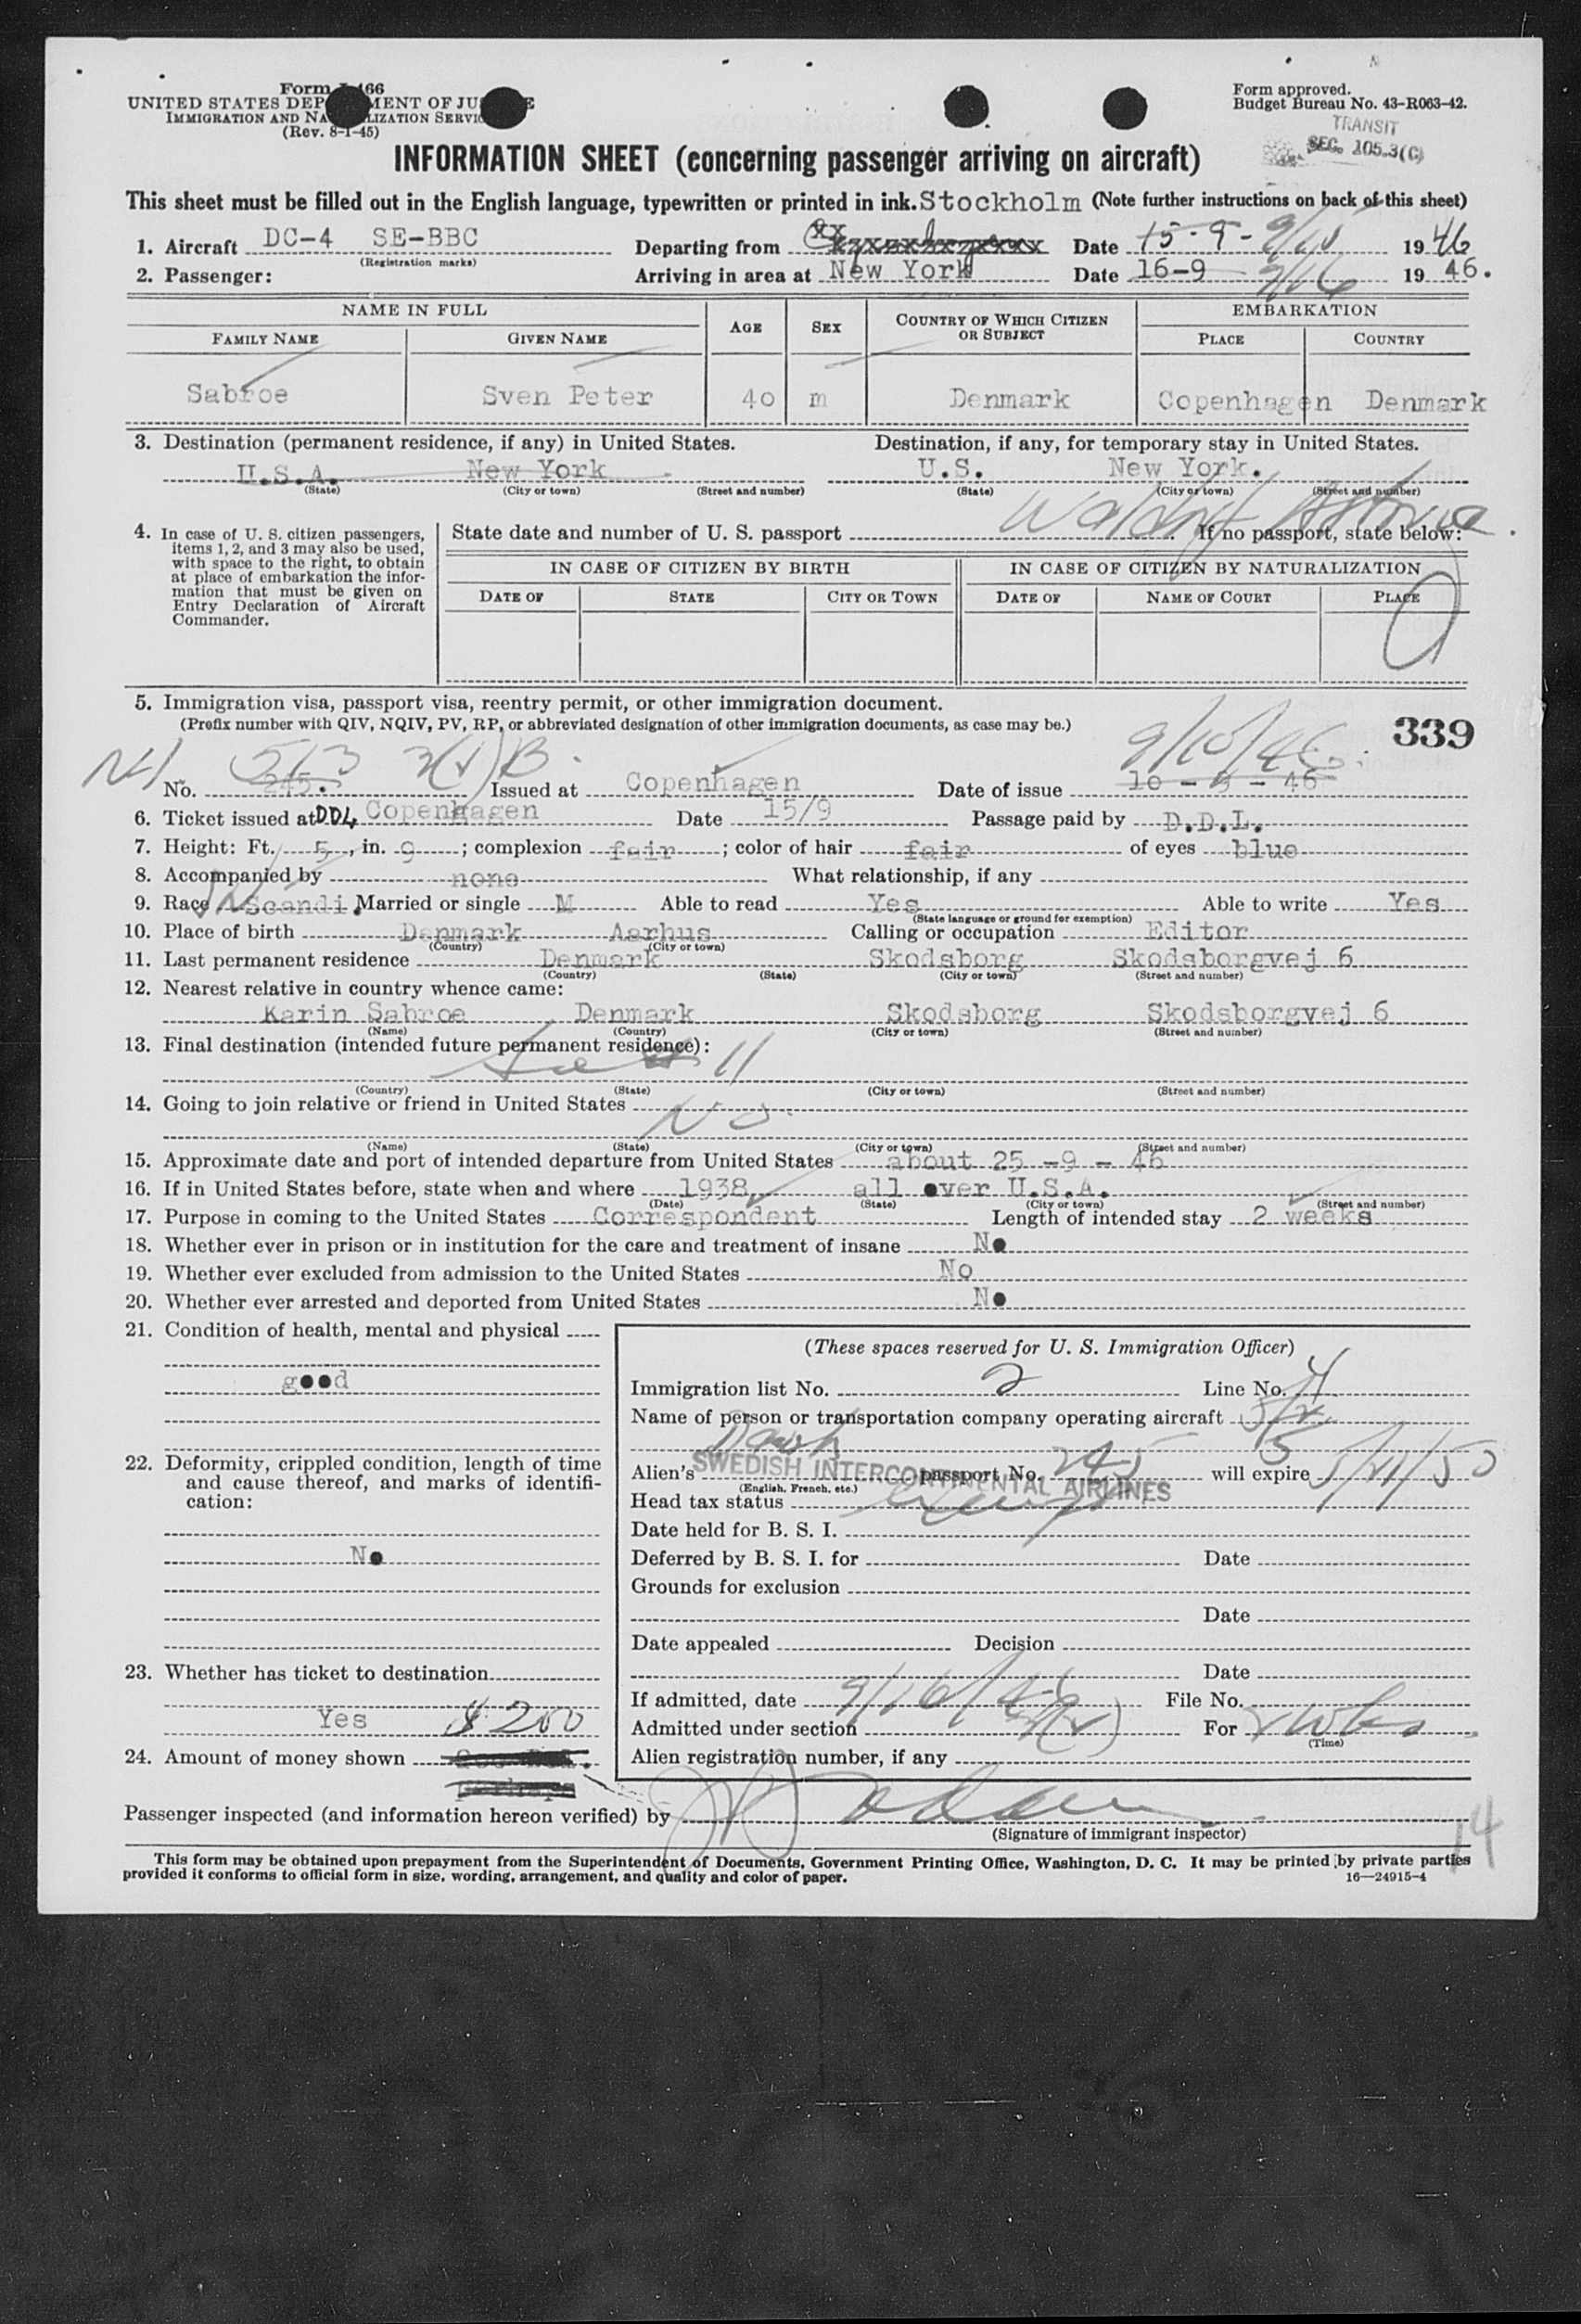 Form I-466
UNITED STATES DEPARTMENT OF JUSTICE
IMMIGRATION AND NATURALIZATION SERVICE
(Rev. 8-1-45)
Form approved.
Budget Bureau No. 43-R063-42.
TRANSIT
SEC. 105.3(C)
INFORMATION SHEET (concerning passenger arriving on aircraft)
This sheet must be filled out in the English language, typewritten or printed in ink. Stockholm (Note further instructions on back of this sheet)
1. Aircraft DC-4 SE-BBC Departing from Date 15-9- 9/15 1946
(Registration marks)
2. Passenger: Arriving in area at New York Date 16-9 9/16 19 46.
NAME IN FULL AGE SEX COUNTRY OF WHICH CITIZEN OR SUBJECT EMBARKATION
FAMILY NAME GIVEN NAME PLACE COUNTRY
Sabroe Sven Peter 40 m Denmark Copenhagen Denmark
3. Destination (permanent residence, if any) in United States. Destination, if any, for temporary stay in United States.
U.S.A. New York U.S. New York.
(State) (City or town) (Street and number) (State) (City or town) (Street and number)
Waldorf Astoria.
4. In case of U. S. citizen passengers, items 1, 2, and 3 may also be used, with space to the right, to obtain at place of embarkation the information that must be given on Entry Declaration of Aircraft Commander.
State date and number of U. S. passport If no passport, state below:
IN CASE OF CITIZEN BY BIRTH IN CASE OF CITIZEN BY NATURALIZATION
DATE OF STATE CITY OR TOWN DATE OF NAME OF COURT PLACE
5. Immigration visa, passport visa, reentry permit, or other immigration document.
(Prefix number with QIV, NQIV, PV, RP, or abbreviated designation of other immigration documents, as case may be.)
339
513 3(1)B. 9/10/46
No. 245. Issued at Copenhagen Date of issue 10 - 9 - 46
6. Ticket issued at DDL Copenhagen Date 15/9 Passage paid by D.D.L.
7. Height: Ft. 5, in. 9; complexion fair; color of hair fair of eyes blue
8. Accompanied by none What relationship, if any
9. Race Scandi. Married or single M Able to read Yes Able to write Yes
(State language or ground for exemption)
10. Place of birth Denmark Aarhus Calling or occupation Editor
(Country) (City or town)
11. Last permanent residence Denmark Skodsborg Skodsborgvej 6
(Country) (State) (City or town) (Street and number)
12. Nearest relative in country whence came:
Karin Sabroe Denmark Skodsborg Skodsborgvej 6
(Name) (Country) (City or town) (Street and number)
13. Final destination (intended future permanent residence):
11
(Country) (State) (City or town) (Street and number)
14. Going to join relative or friend in United States No.
(Name) (State) (City or town) (Street and number)
15. Approximate date and port of intended departure from United States about 25 -9 - 46
16. If in United States before, state when and where 1938, all over U.S.A.
(Date) (State) (City or town) (Street and number)
17. Purpose in coming to the United States Correspondent Length of intended stay 2 weeks
18. Whether ever in prison or in institution for the care and treatment of insane No
19. Whether ever excluded from admission to the United States No
20. Whether ever arrested and deported from United States No
21. Condition of health, mental and physical
good
22. Deformity, crippled condition, length of time and cause thereof, and marks of identification:
No
23. Whether has ticket to destination
Yes $200
24. Amount of money shown
(These spaces reserved for U. S. Immigration Officer)
Immigration list No. 2 Line No. 4
Name of person or transportation company operating aircraft
Danish
SWEDISH INTERCONTINENTAL AIRLINES
Alien's passport No. 245 will expire 5/21/50
(English, French, etc.)
Head tax status
Date held for B. S. I.
Deferred by B. S. I. for Date
Grounds for exclusion
Date
Date appealed Decision
Date
If admitted, date 9/16/46 File No.
Admitted under section For 2 wks
(Time)
Alien registration number, if any
Passenger inspected (and information hereon verified) by
(Signature of immigrant inspector)
14
This form may be obtained upon prepayment from the Superintendent of Documents, Government Printing Office, Washington, D. C. It may be printed by private parties
provided it conforms to official form in size, wording, arrangement, and quality and color of paper. 16—24915-4